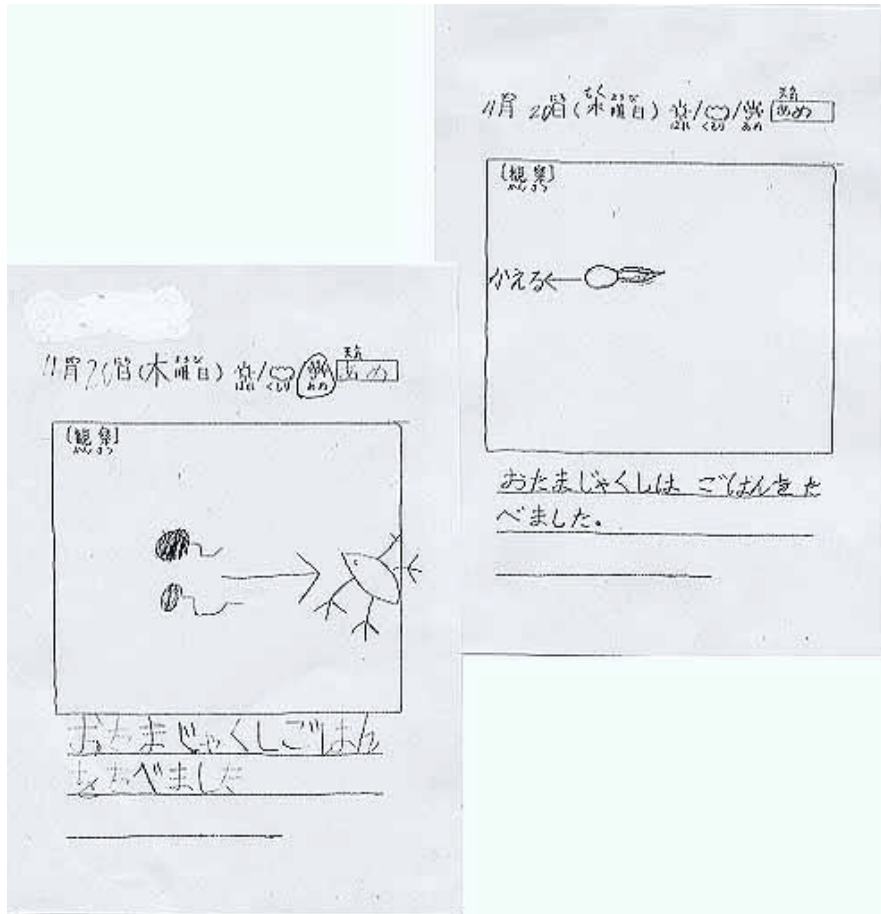 11月20日(木曜日) はれ/くもり/あめ 天気 あめ
[観察]
おたまじゃくしごはん
をたべました
11月20日(木曜日) はれ/くもり/あめ 天気 あめ
[観察]
かえる
おたまじゃくしは ごはんをた
べました。